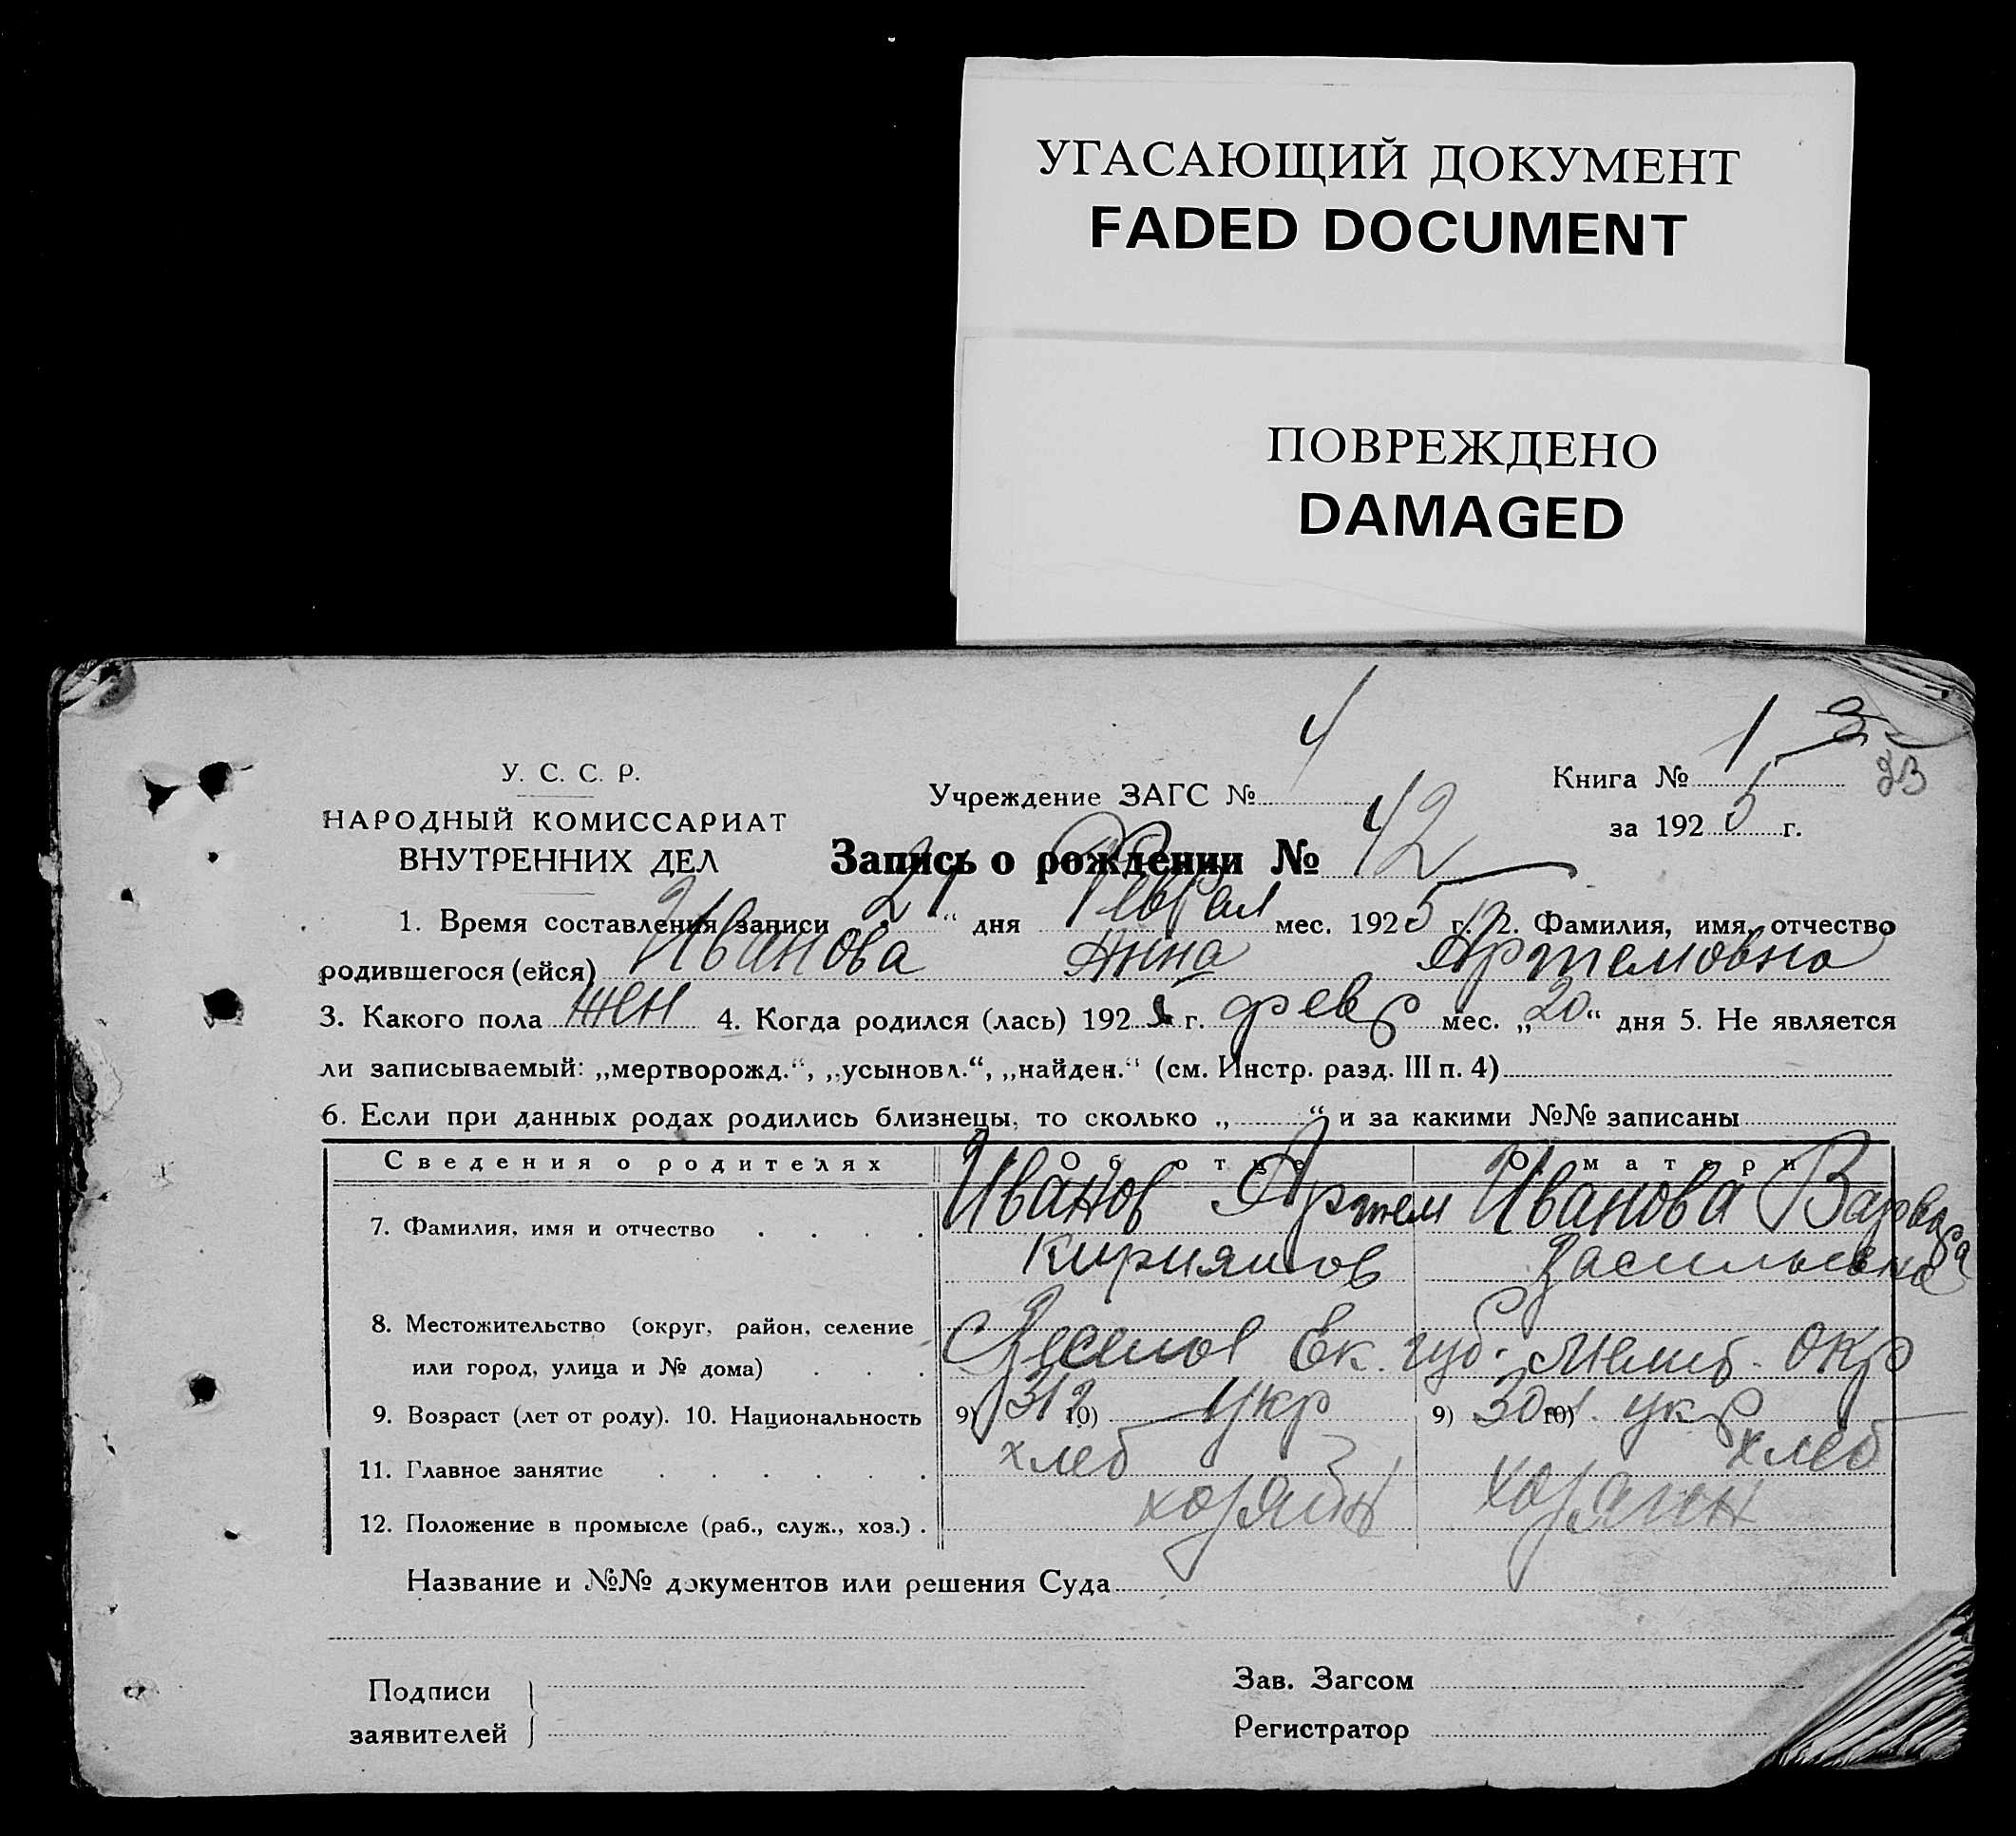 УГАСАЮЩИЙ ДОКУМЕНТ
FADED DOCUMENT
ПОВРЕЖДЕНО
DAMAGED
У. С. С. Р.
НАРОДНЫЙ КОМИССАРИАТ
ВНУТРЕННИХ ДЕЛ
Учреждение ЗАГС № 4
Книга № 1 3
33
за 1925 г.
Запись о рождении № 42
1. Время составления записи „21“ дня Феврал мес. 1925 г. 2. Фамилия, имя, отчество
родившегося (ейся) Иванова Анна Артемовна
3. Какого пола жен 4. Когда родился (лась) 1925 г. февр мес. „20“ дня 5. Не является
ли записываемый: „мертворожд.“, „усыновл.“, „найден.“ (см. Инстр. разд. III п. 4)
6. Если при данных родах родились близнецы, то сколько „ “ и за какими №№ записаны
Сведения о родителях Об отце О матери
7. Фамилия, имя и отчество Иванов Артем Иванова Варвара
Кириянов Васильевна
8. Местожительство (округ, район, селение
или город, улица и № дома) С Веселое Ек. губ. Мелит. окр
9. Возраст (лет от роду). 10. Национальность 9) 31 10) укр 9) 30 10) укр
11. Главное занятие хлеб хлеб
12. Положение в промысле (раб., служ., хоз.) хозяин хозяин
Название и №№ документов или решения Суда
Подписи
заявителей
Зав. Загсом
Регистратор